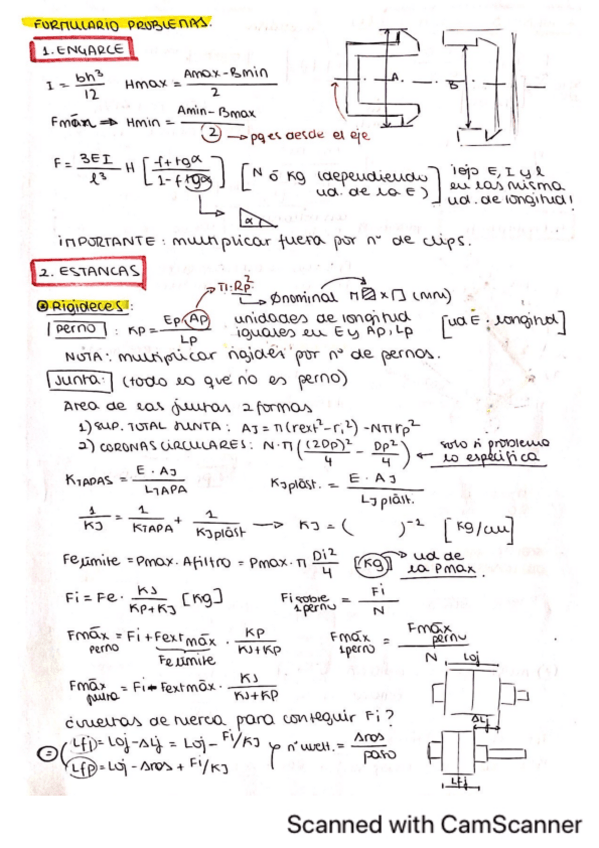 FORMULARIO PROBLEMAS.
1. ENGARCE
I = bh³/12   Hmax = (Amax - Bmin)/2
Fmáx ⇒ Hmin = (Amin - Bmax)/2 → pq es desde el eje
A   B
F = 3EI/l³ H [(f + tgα)/(1 - f·tgα)] [N ó Kg (dependiendo ud. de la E)] ¡ojo E, I y l en las misma ud. de longitud!
α
IMPORTANTE: multiplicar fuera por nº de clips.
2. ESTANCAS
Π·Rp²
Rigideces:
→ Ønominal M▢ x ▢ (mm)
perno: Kp = Ep·Ap/Lp   unidades de longitud iguales en E y Ap, Lp   [ud E · longitud]
NOTA: multiplicar rigidez por nº de pernos.
Junta: (todo lo que no es perno)
Area de las juntas 2 formas
1) SUP. TOTAL JUNTA: Aj = π(rext² - ri²) - Nπrp²
2) CORONAS CIRCULARES: N·π((2Dp)²/4 - Dp²/4) ← solo si problema lo especifica
KTAPAS = E·Aj/LTAPA   Kjplást. = E·Aj/Lj plást.
1/Kj = 1/KTAPA + 1/Kjplást → Kj = (   )⁻² [Kg/cm]
Felímite = Pmax·Afiltro = Pmax·π Di²/4 [Kg] → ud de la Pmax.
Fi = Fe· Kj/(Kp+Kj) [Kg]   Fi sobre 1perno = Fi/N
Fmáx perno = Fi + Fextmáx · Kp/(Kj+Kp)   Fmáx 1perno = Fmáx perno/N
Felímite
Loj
Fmáx junta = Fi - Fextmáx · Kj/(Kj+Kp)
ΔLj
¿vueltas de tuerca para conseguir Fi?
= (Lfj) = Loj - ΔLj = Loj - Fi/Kj   y nº vuelt. = Δros/paso
(Lfp) = Loj - Δros + Fi/Kj
Lfj
Scanned with CamScanner